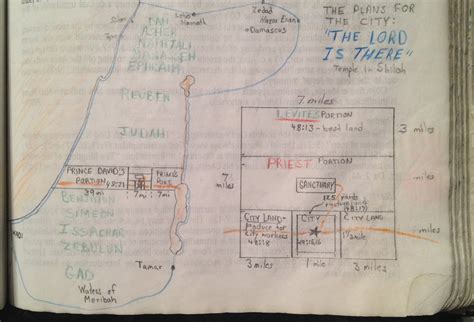 THE PLANS FOR
THE CITY:
"THE LORD
IS THERE"
Temple in Shiloh
Zedad
Hazar Enan
Damascus
Hamath
DAN
ASHER
NAPHTALI
MANASSEH
EPHRAIM
REUBEN
JUDAH
PRINCE DAVID'S
PORTION 48:21
PRINCE'S
39 mi
7 mi
7 mi
BENJAMIN
SIMEON
ISSACHAR
ZEBULUN
GAD
Tamar
Waters of
Meribah
7 miles
LEVITES PORTION
48:13 - best land
3 miles
PRIEST PORTION
7
miles
SANCTUARY
miles
CITY LAND
produce for
city workers
48:18
CITY
CITY LAND
miles
3 miles
1 mile
3 miles